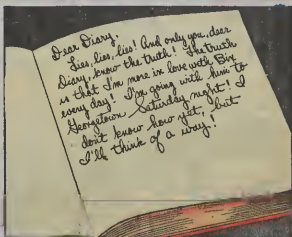 Dear Diary,
Lies, lies, lies! And only you, dear
Diary, know the truth! The truth
is that I'm more in love with Bix
every day! I'm going with him to
Georgetown Saturday night! I
don't know how yet, but
I'll think of a way!